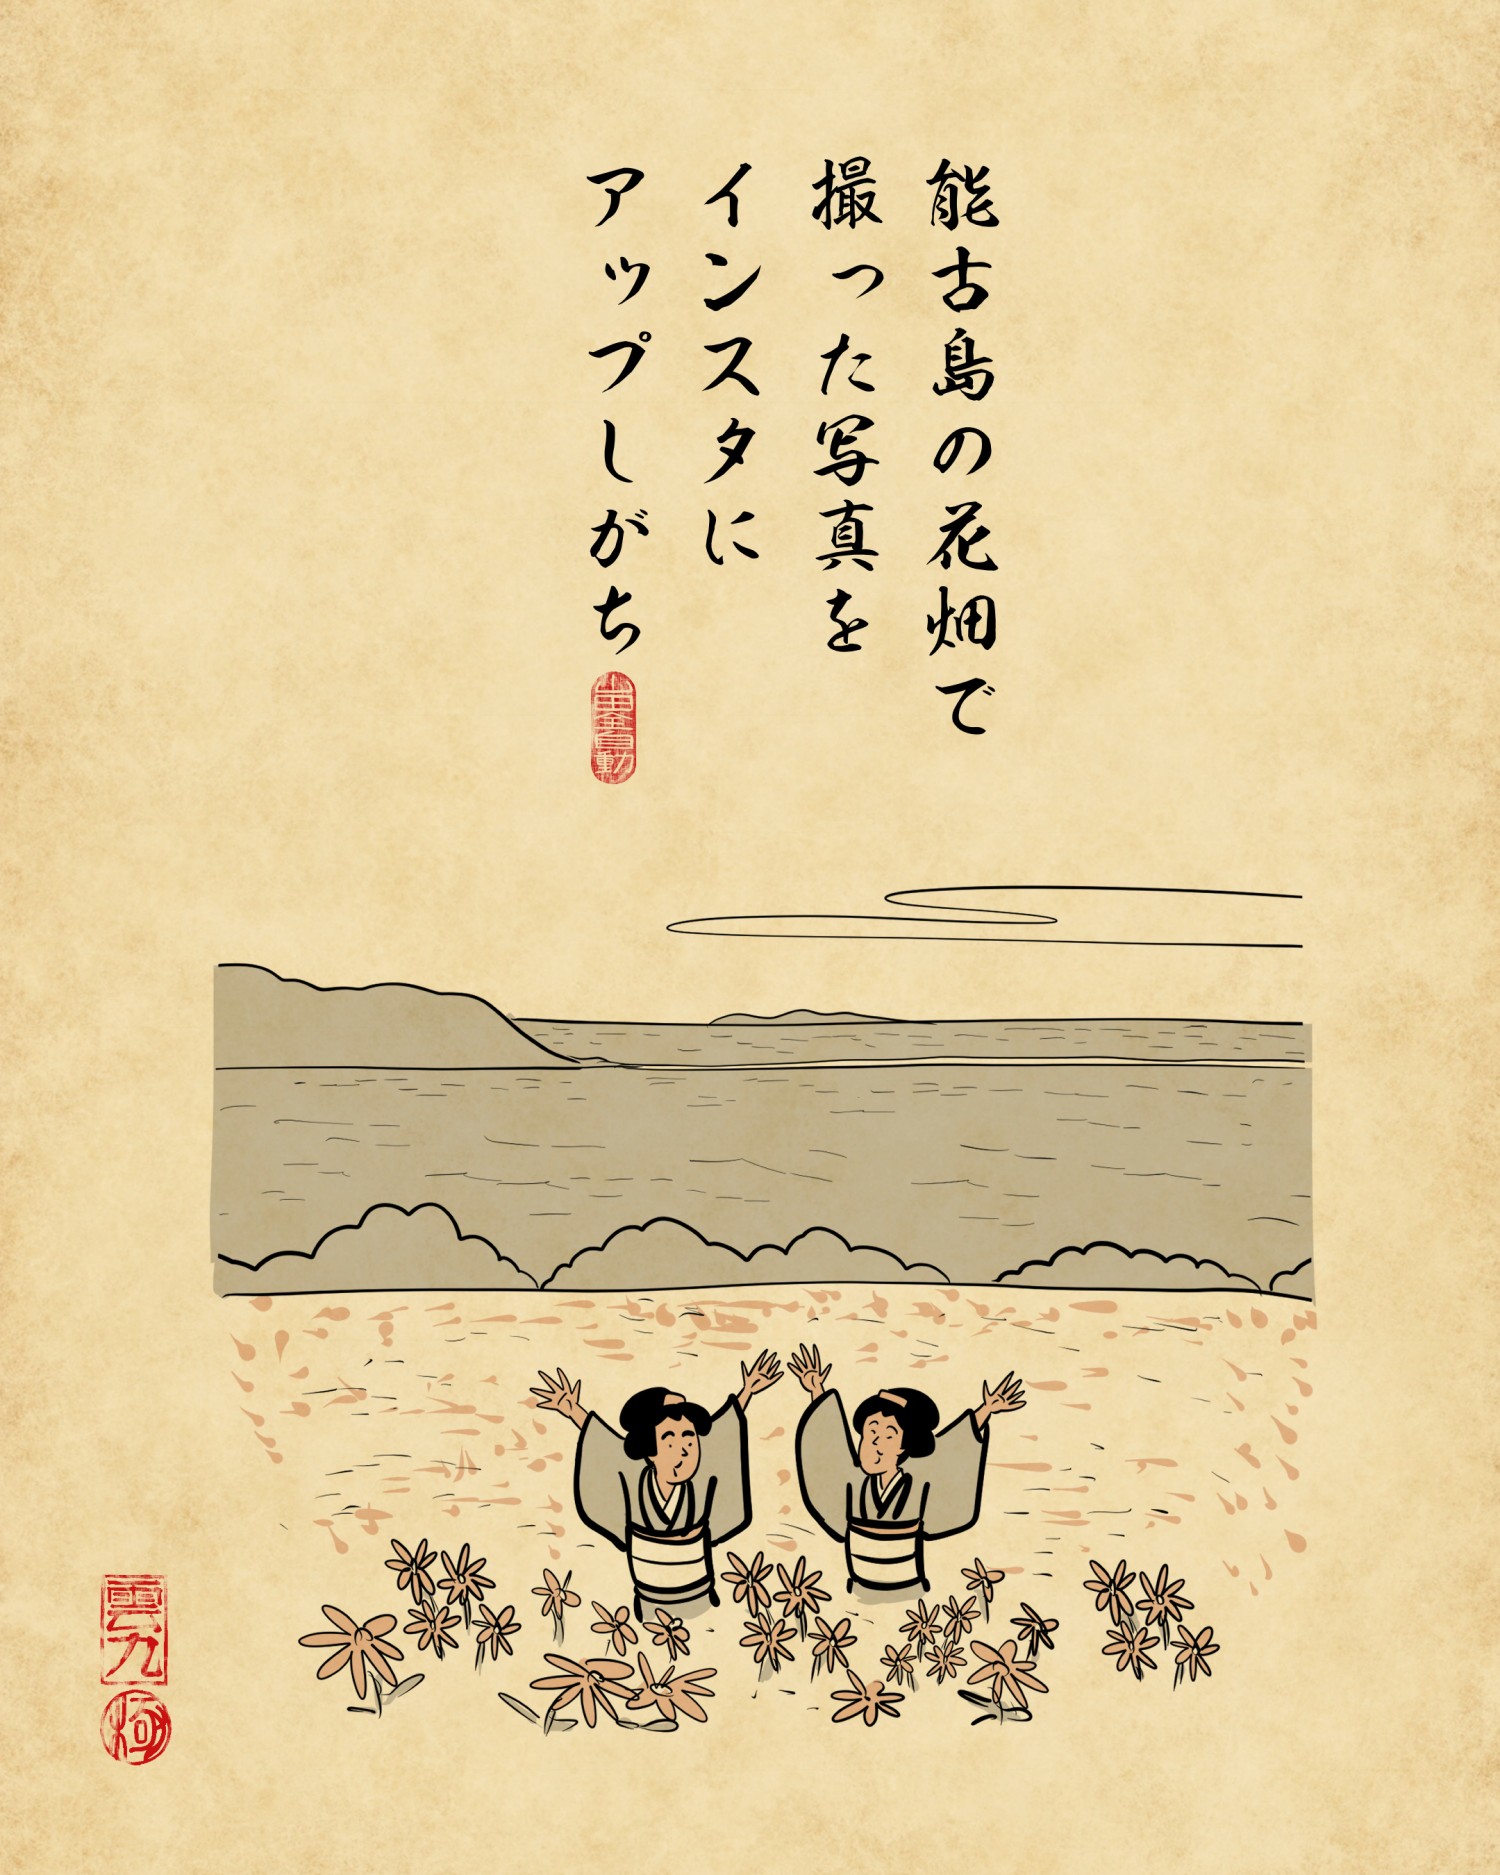 能古島の花畑で
撮った写真を
インスタに
アップしがち
雲九
極